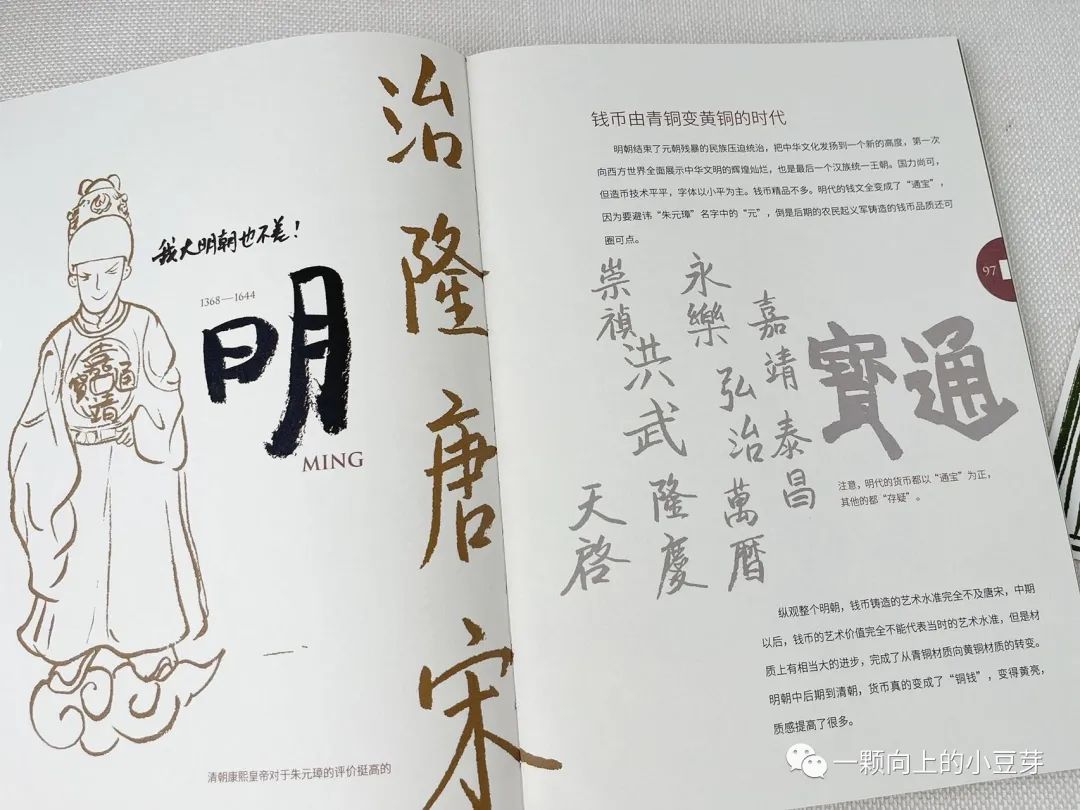 治隆唐宋
我大明朝也不差！
1368—1644
明
MING
嘉靖通寶
清朝康熙皇帝对于朱元璋的评价挺高的
钱币由青铜变黄铜的时代
明朝结束了元朝残暴的民族压迫统治，把中华文化发扬到一个新的高度，第一次
向西方世界全面展示中华文明的辉煌灿烂，也是最后一个汉族统一王朝。国力尚可，
但造币技术平平，字体以小平为主。钱币精品不多。明代的钱文全变成了“通宝”，
因为要避讳“朱元璋”名字中的“元”，倒是后期的农民起义军铸造的钱币品质还可
圈可点。
97
崇禎
永樂
嘉靖
洪武
弘治
泰昌
天啓
隆慶
萬曆
通寶
注意，明代的货币都以“通宝”为正，
其他的都“存疑”。
纵观整个明朝，钱币铸造的艺术水准完全不及唐宋，中期
以后，钱币的艺术价值完全不能代表当时的艺术水准，但是材
质上有相当大的进步，完成了从青铜材质向黄铜材质的转变。
明朝中后期到清朝，货币真的变成了“铜钱”，变得黄亮，
质感提高了很多。
一颗向上的小豆芽